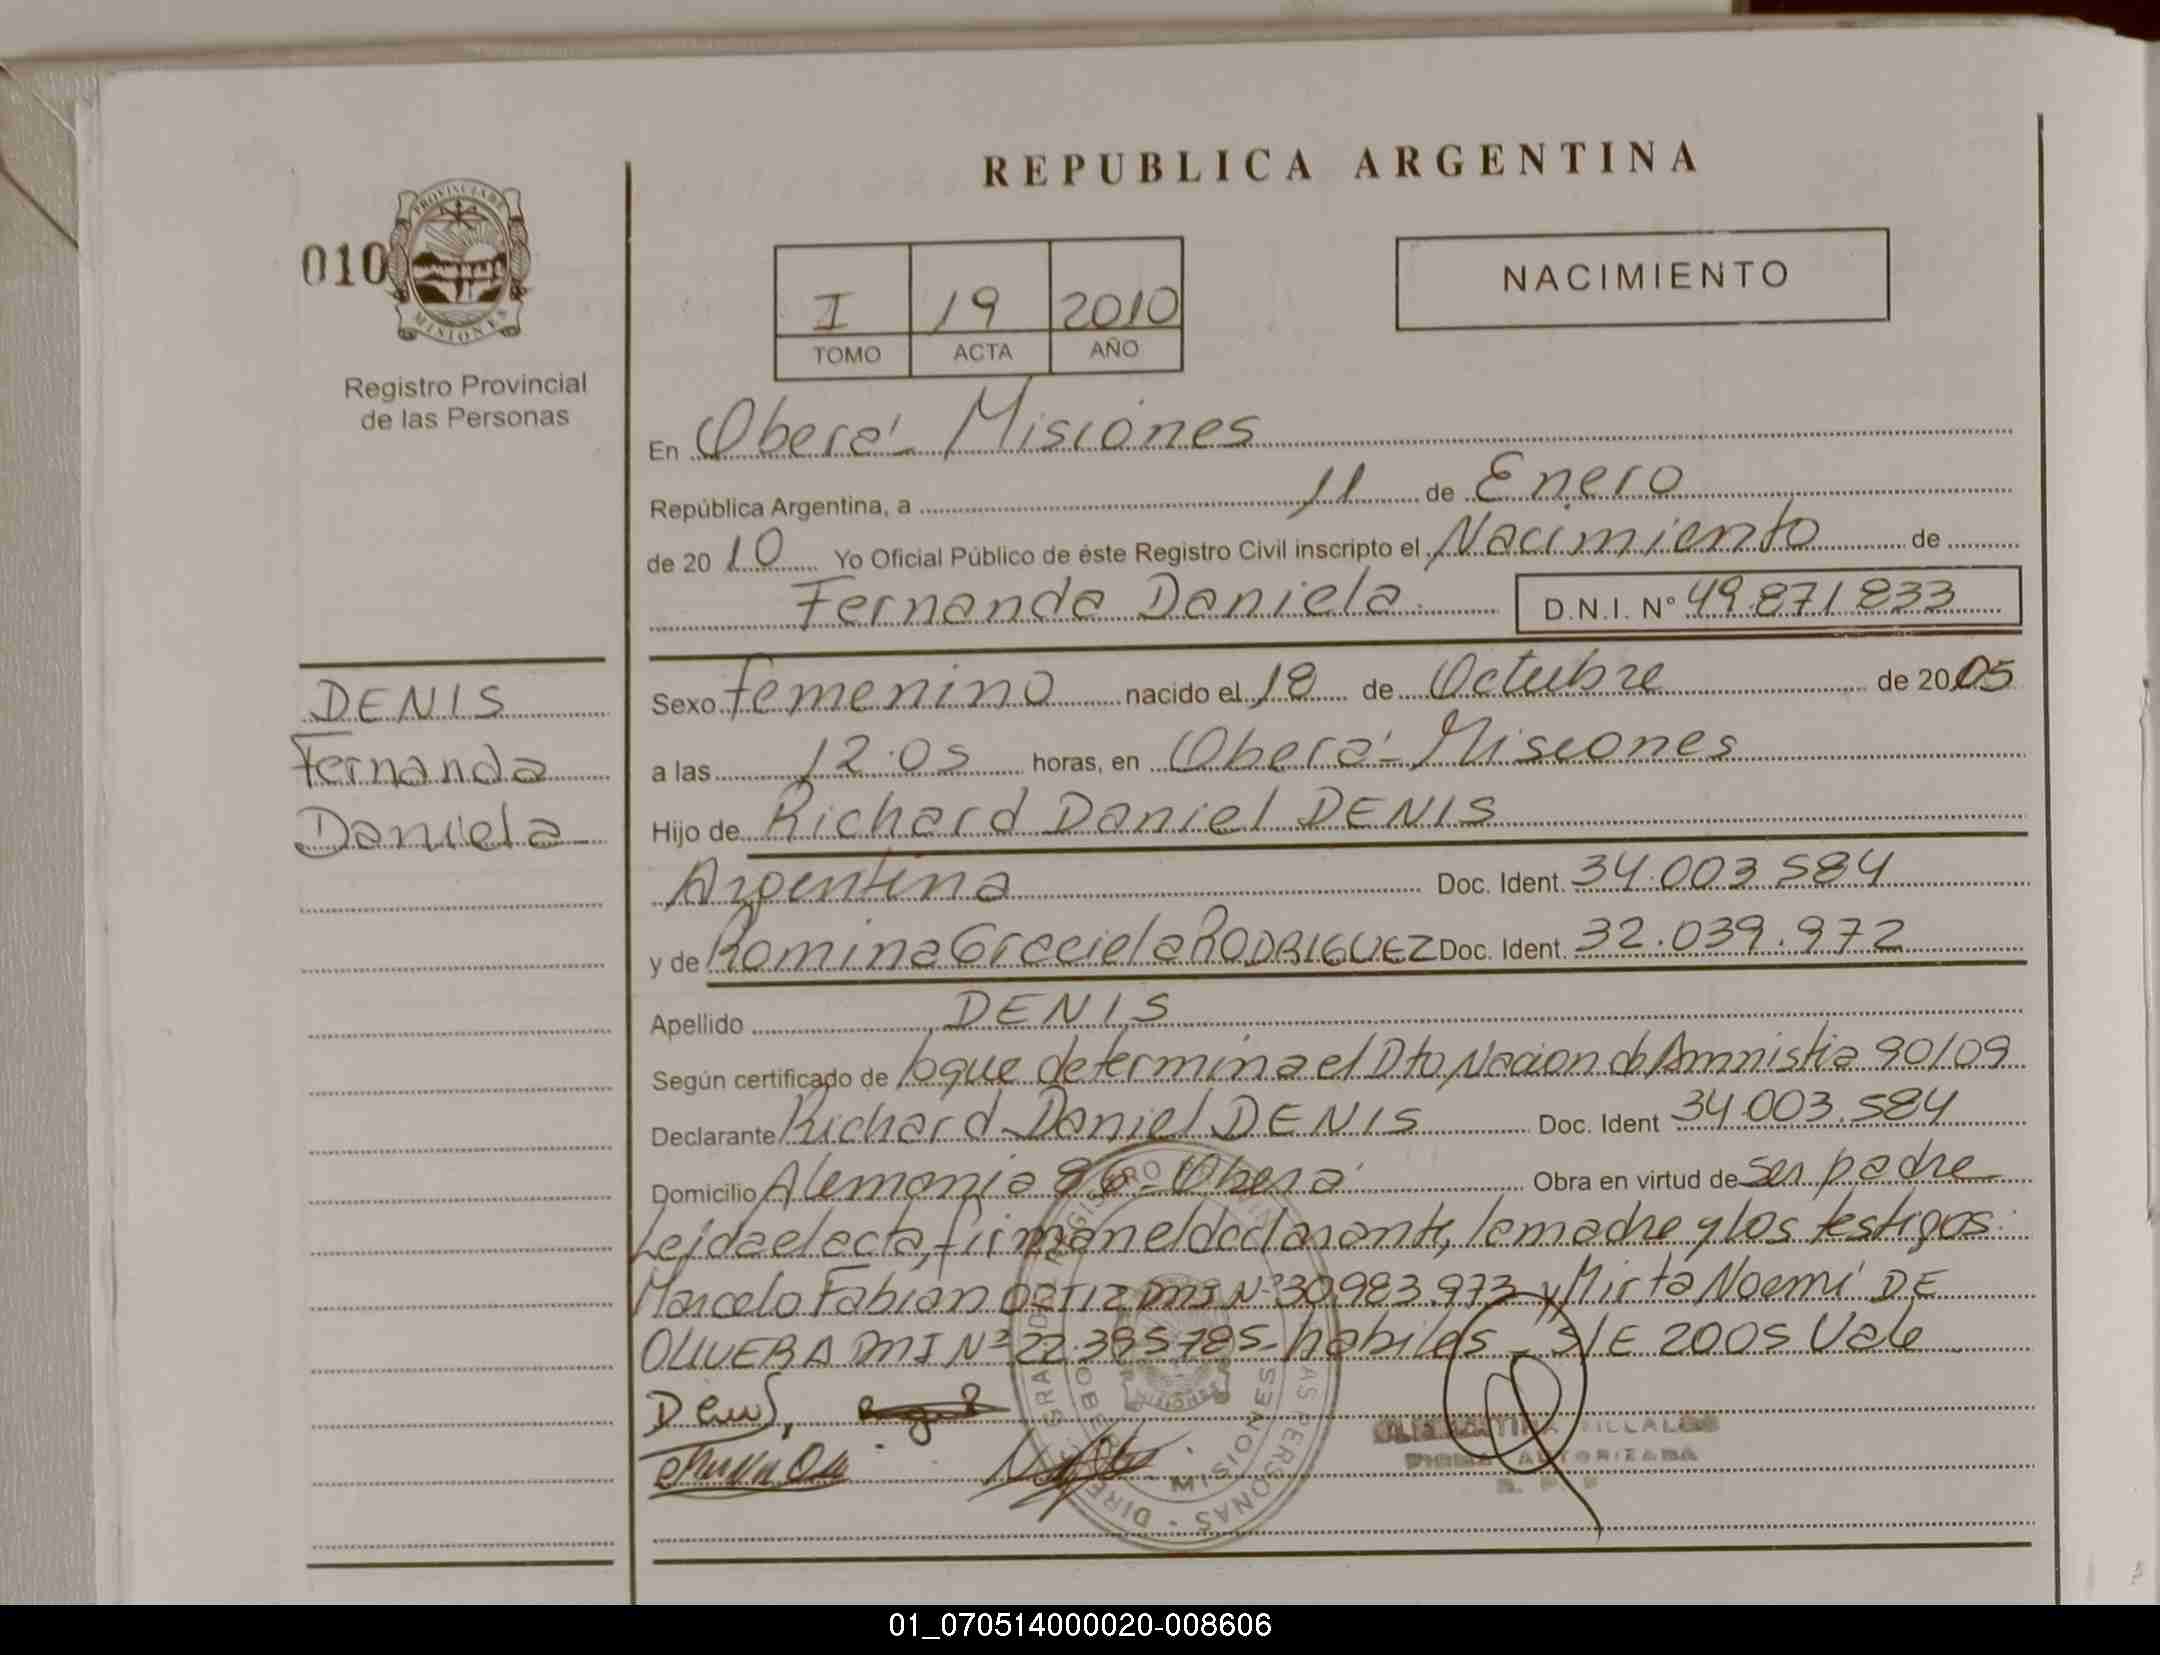 REPUBLICA ARGENTINA
010
PROVINCIA DE
MISIONES
Registro Provincial
de las Personas
I 19 2010
TOMO ACTA AÑO
NACIMIENTO
En Oberá - Misiones
República Argentina, a 11 de Enero
de 2010 Yo Oficial Público de éste Registro Civil inscripto el Nacimiento de
Fernanda Daniela D.N.I. Nº 49.871.833
DENIS
Fernanda
Daniela
Sexo femenino nacido el 18 de Octubre de 2005
a las 12.05 horas, en Oberá - Misiones
Hijo de Richard Daniel DENIS
Argentina Doc. Ident. 34.003.584
y de Romina Graciela RODRIGUEZ Doc. Ident. 32.039.972
Apellido DENIS
Según certificado de lo que determina el Dto Nacion de Amnistia 90/09
Declarante Richard Daniel DENIS Doc. Ident 34.003.584
Domicilio Alemania 86 - Oberá Obra en virtud de ser padre
Leida el acta, firman el declarante, la madre y los testigos:
Marcelo Fabian ORTIZ DNI Nº 30.983.973 y Mirta Noemí DE
OLIVERA DNI Nº 22.395.785 - habiles - S/E 2005 Vale
Denis,
MISIONES
FIRMA AUTORIZADA
01_070514000020-008606